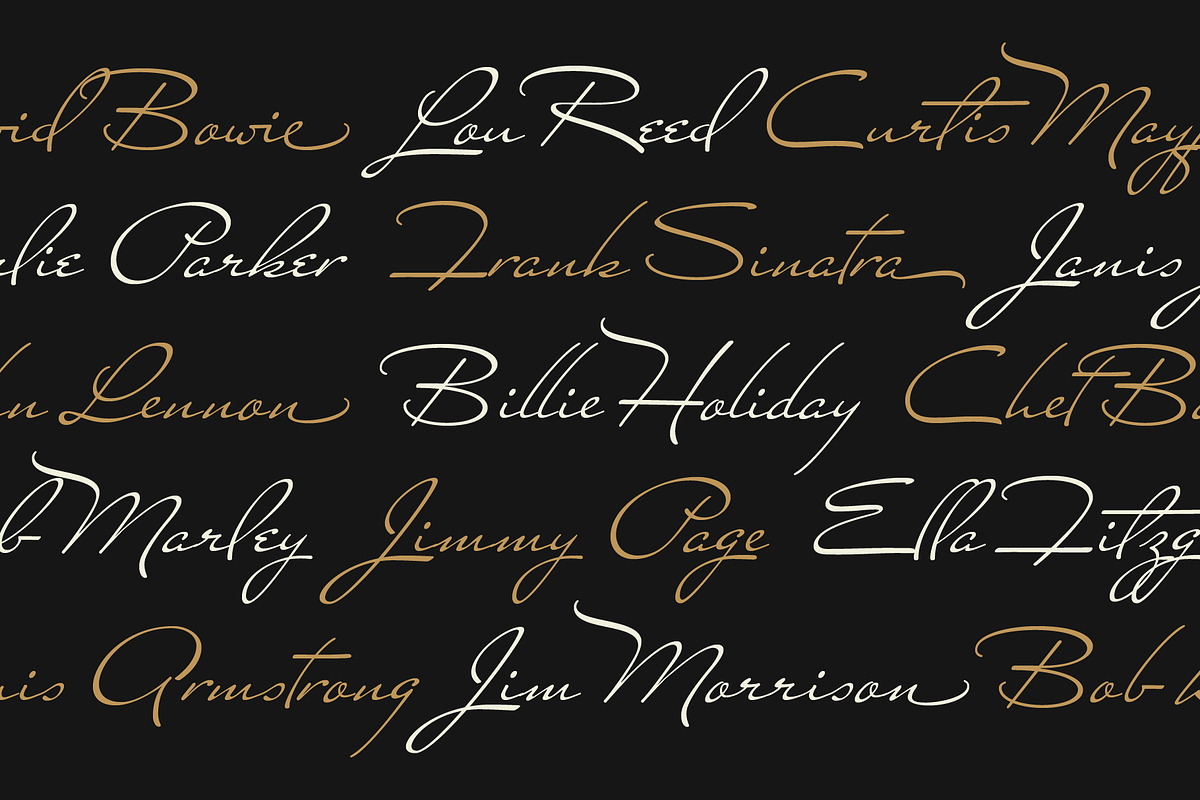 vid Bowie Lou Reed Curtis Mayf
rlie Parker Frank Sinatra Janis
hn Lennon Billie Holiday Chet Ba
b Marley Jimmy Page Ella Fitzg
uis Armstrong Jim Morrison Bob